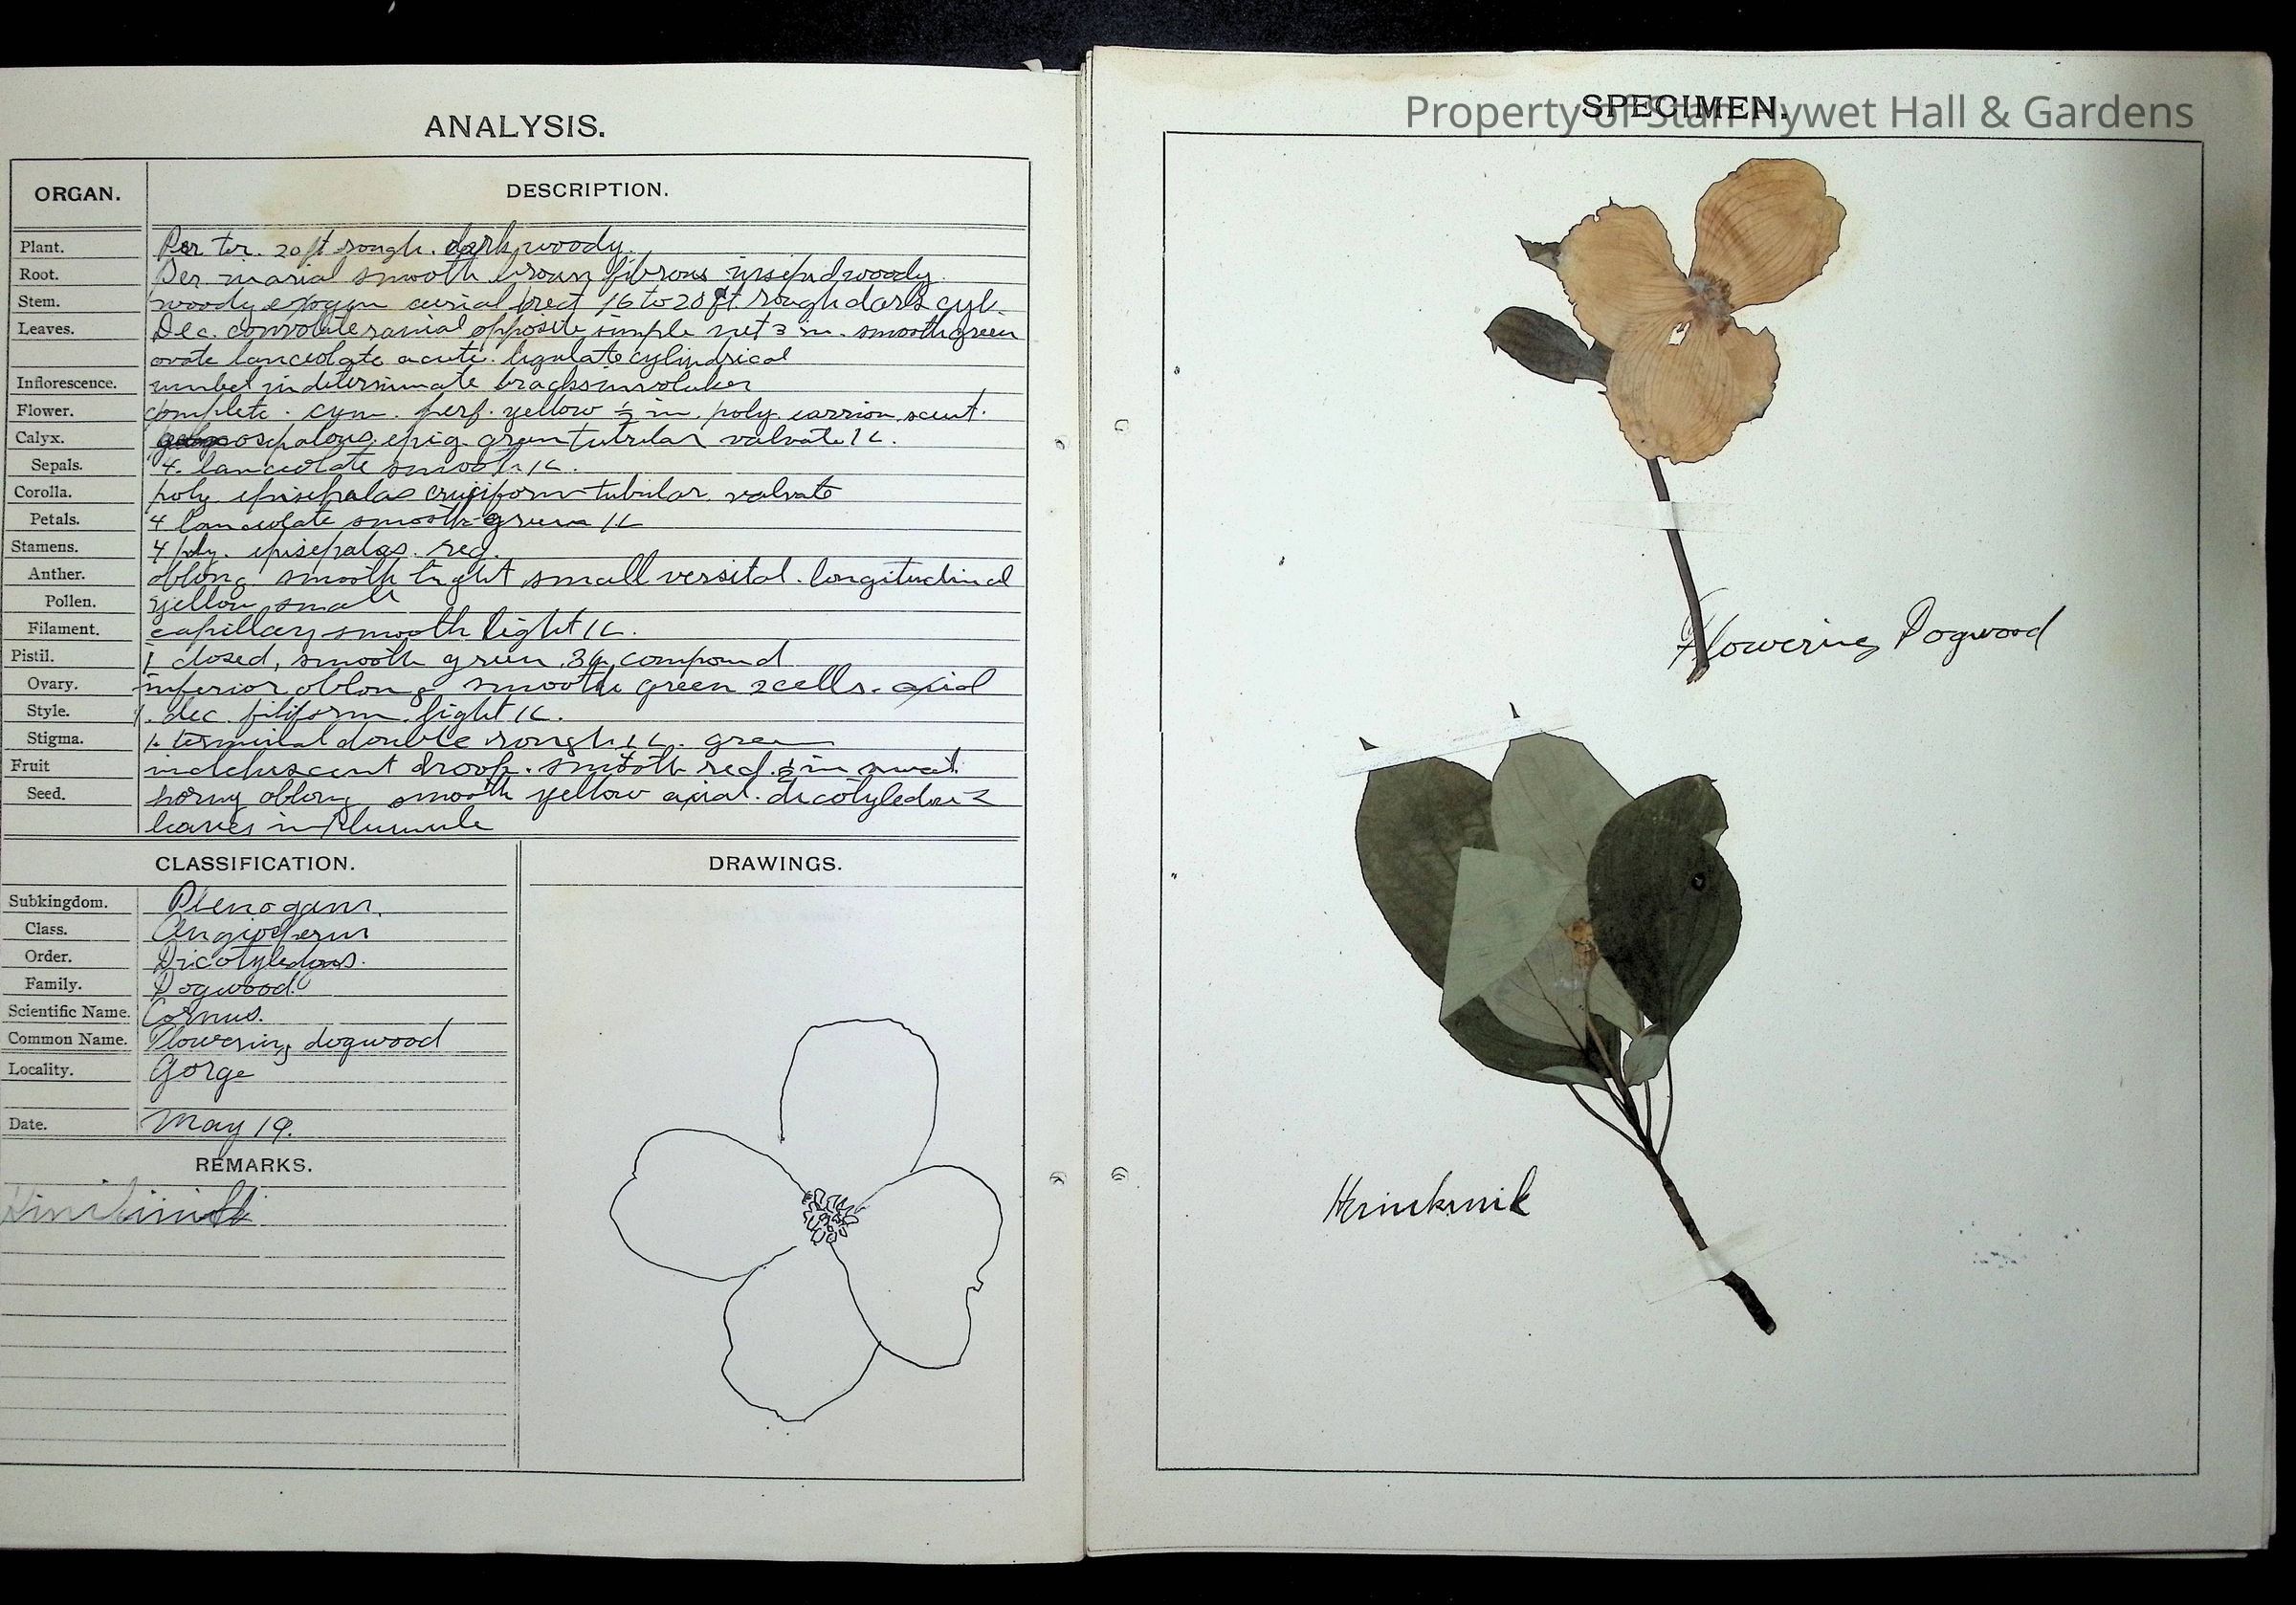 ANALYSIS.
ORGAN. DESCRIPTION.
Plant. Per tr. 20 ft rough. dark woody.
Root. Per smooth brown fibrous woody
Stem. woody exogen aerial erect 16 to 20 ft rough dark cyl.
Leaves. Dec. convolute ramial opposite simple net 3 in. smooth green
ovate lanceolate acute. ligulate cylindrical
Inflorescence. umbel indeterminate
Flower. complete. sym. perf. yellow ½ in. poly. carrion scent.
Calyx. epig. green tubular valvate 1 c.
Sepals. 4. lanceolate smooth 1 c.
Corolla. poly episepalas cruciform tubular. valvate
Petals. 4 lanceolate smooth green 1 c
Stamens. 4 poly. episepalas. reg.
Anther. oblong smooth light small versital. longitudinal
Pollen. yellow small
Filament. capillary smooth light 1 c.
Pistil. 1 closed, smooth green compound
Ovary. inferior oblong smooth green 2 cells. axial
Style. 1. dec. filiform. light 1 c.
Stigma. 1. terminal double rough 1 c. green
Fruit indehiscent droop. smooth red. ½ in
Seed. horny oblong smooth yellow axial. dicotyledon 2
leaves in Plumule
CLASSIFICATION. DRAWINGS.
Subkingdom. Phenogam.
Class. Angiosperm
Order. Dicotyledons.
Family. Dogwood.
Scientific Name. Cornus.
Common Name. Flowering dogwood
Locality. Gorge
Date. May 19.
REMARKS.
SPECIMEN.
Property of Stan Hywet Hall & Gardens
Flowering Dogwood